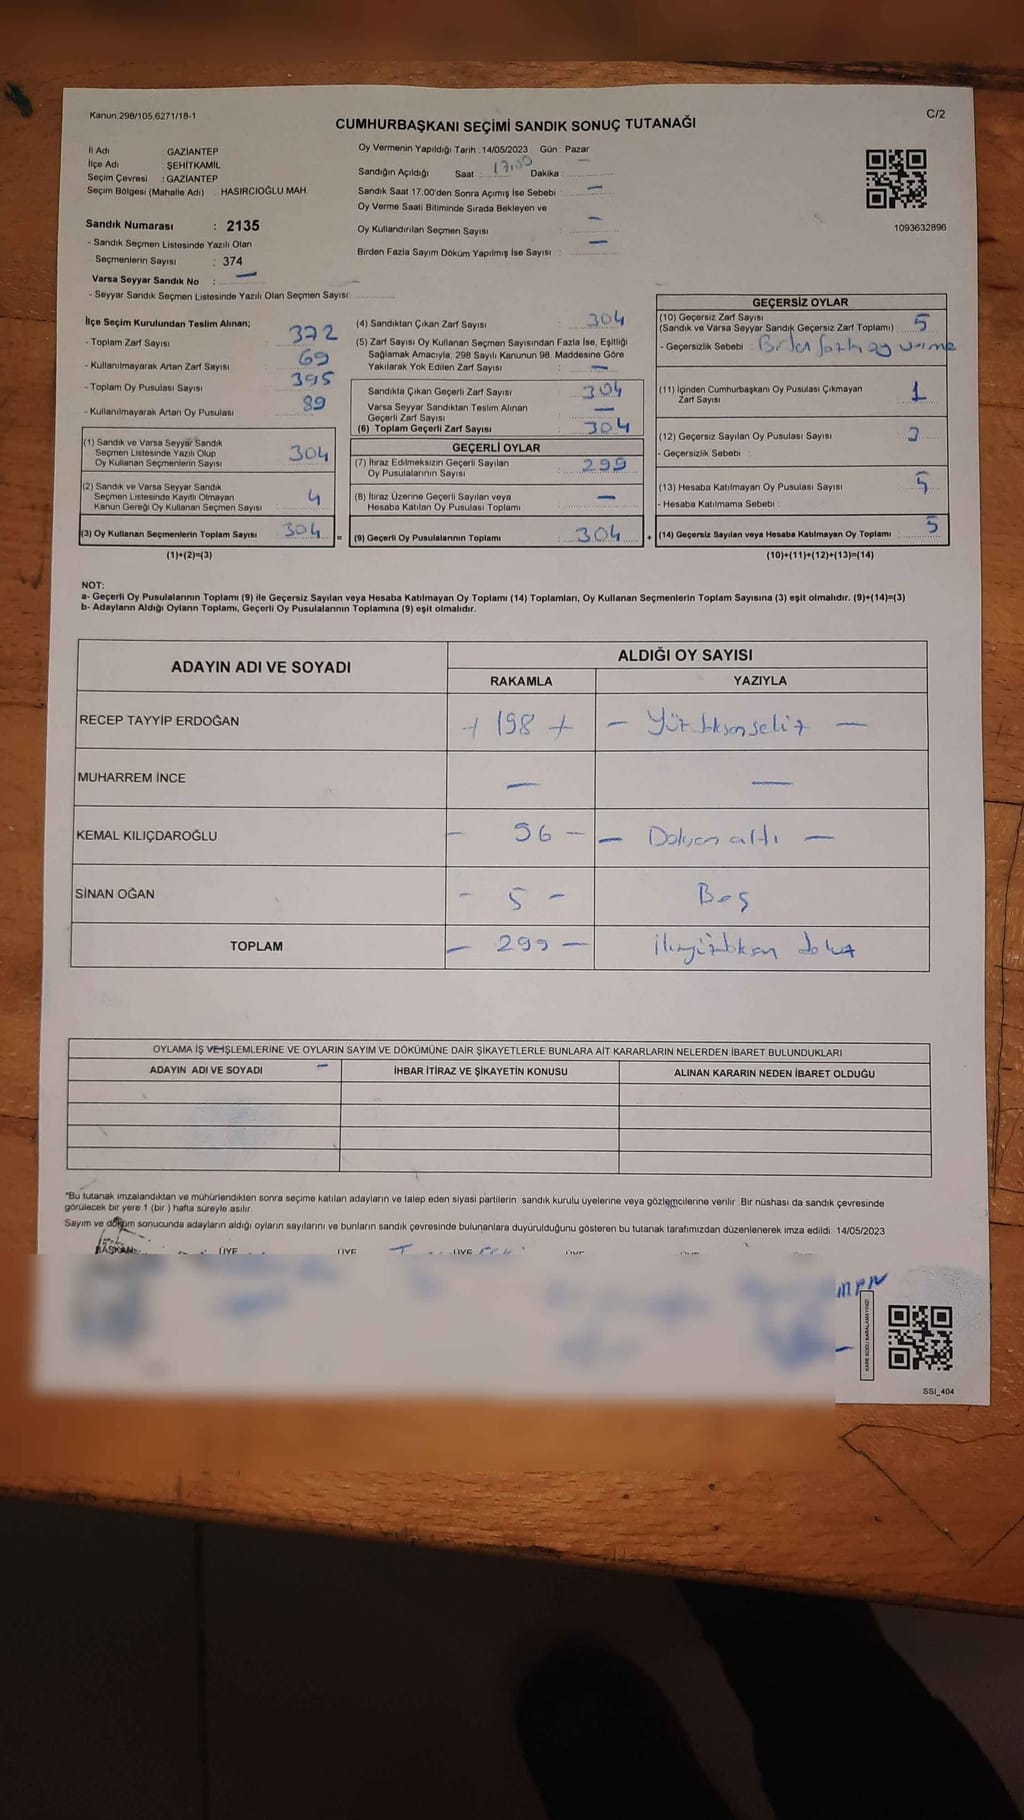 Kanun 298/105,6271/18-1
C/2
CUMHURBAŞKANI SEÇİMİ SANDIK SONUÇ TUTANAĞI
İl Adı : GAZİANTEP
İlçe Adı : ŞEHİTKAMİL
Seçim Çevresi : GAZİANTEP
Seçim Bölgesi (Mahalle Adı) HASIRCIOĞLU MAH.
Sandık Numarası : 2135
- Sandık Seçmen Listesinde Yazılı Olan
Seçmenlerin Sayısı : 374
Varsa Seyyar Sandık No : —
- Seyyar Sandık Seçmen Listesinde Yazılı Olan Seçmen Sayısı:
Oy Vermenin Yapıldığı Tarih : 14/05/2023 Gün : Pazar
Sandığın Açıldığı Saat 17,00 Dakika : —
Sandık Saat 17:00'den Sonra Açımış İse Sebebi : —
Oy Verme Saati Bitiminde Sırada Bekleyen ve
Oy Kullandırılan Seçmen Sayısı —
Birden Fazla Sayım Döküm Yapılmış İse Sayısı : —
1093632896
İlçe Seçim Kurulundan Teslim Alınan;
- Toplam Zarf Sayısı : 372
- Kullanılmayarak Artan Zarf Sayısı : 69
- Toplam Oy Pusulası Sayısı : 395
- Kullanılmayarak Artan Oy Pusulası : 89
(1) Sandık ve Varsa Seyyar Sandık
Seçmen Listesinde Yazılı Olup
Oy Kullanan Seçmenlerin Sayısı 304
(2) Sandık ve Varsa Seyyar Sandık
Seçmen Listesinde Kayıtlı Olmayan
Kanun Gereği Oy Kullanan Seçmen Sayısı 4
(3) Oy Kullanan Seçmenlerin Toplam Sayısı 304 =
(1)+(2)=(3)
(4) Sandıktan Çıkan Zarf Sayısı : 304
(5) Zarf Sayısı Oy Kullanan Seçmen Sayısından Fazla İse, Eşitliği
Sağlamak Amacıyla, 298 Sayılı Kanunun 98. Maddesine Göre
Yakılarak Yok Edilen Zarf Sayısı : —
Sandıkta Çıkan Geçerli Zarf Sayısı : 304
Varsa Seyyar Sandıktan Teslim Alınan
Geçerli Zarf Sayısı —
(6) Toplam Geçerli Zarf Sayısı : 304
GEÇERLİ OYLAR
(7) İtiraz Edilmeksizin Geçerli Sayılan
Oy Pusulalarının Sayısı : 299
(8) İtiraz Üzerine Geçerli Sayılan veya
Hesaba Katılan Oy Pusulası Toplamı —
(9) Geçerli Oy Pusulalarının Toplamı : 304 +
GEÇERSİZ OYLAR
(10) Geçersiz Zarf Sayısı
(Sandık ve Varsa Seyyar Sandık Geçersiz Zarf Toplamı) 5
- Geçersizlik Sebebi : Birden fazla oy verme
(11) İçinden Cumhurbaşkanı Oy Pusulası Çıkmayan
Zarf Sayısı 1
(12) Geçersiz Sayılan Oy Pusulası Sayısı
- Geçersizlik Sebebi :
(13) Hesaba Katılmayan Oy Pusulası Sayısı 5
- Hesaba Katılmama Sebebi :
(14) Geçersiz Sayılan veya Hesaba Katılmayan Oy Toplamı 5
(10)+(11)+(12)+(13)=(14)
NOT:
a- Geçerli Oy Pusulalarının Toplamı (9) ile Geçersiz Sayılan veya Hesaba Katılmayan Oy Toplamı (14) Toplamları, Oy Kullanan Seçmenlerin Toplam Sayısına (3) eşit olmalıdır. (9)+(14)=(3)
b- Adayların Aldığı Oyların Toplamı, Geçerli Oy Pusulalarının Toplamına (9) eşit olmalıdır.
ADAYIN ADI VE SOYADI
ALDIĞI OY SAYISI
RAKAMLA YAZIYLA
RECEP TAYYİP ERDOĞAN + 198 + — Yüzdoksansekiz —
MUHARREM İNCE — —
KEMAL KILIÇDAROĞLU — 96 — — Doksan altı —
SİNAN OĞAN - 5 - Beş
TOPLAM — 299 — ikiyüzdoksan dokuz
OYLAMA İŞ VE İŞLEMLERİNE VE OYLARIN SAYIM VE DÖKÜMÜNE DAİR ŞİKAYETLERLE BUNLARA AİT KARARLARIN NELERDEN İBARET BULUNDUKLARI
ADAYIN ADI VE SOYADI — İHBAR İTİRAZ VE ŞİKAYETİN KONUSU ALINAN KARARIN NEDEN İBARET OLDUĞU
"Bu tutanak imzalandıktan ve mühürlendikten sonra seçime katılan adayların ve talep eden siyasi partilerin sandık kurulu üyelerine veya gözlemcilerine verilir. Bir nüshası da sandık çevresinde
görülecek bir yere 1 (bir ) hafta süreyle asılır.
Sayım ve döküm sonucunda adayların aldığı oyların sayılarını ve bunların sandık çevresinde bulunanlara duyurulduğunu gösteren bu tutanak tarafımızdan düzenlenerek imza edildi. 14/05/2023
BAŞKAN ÜYE ÜYE ÜYE ÜYE ÜYE
KARE KODU KARALAMAYINIZ!
SSI_404